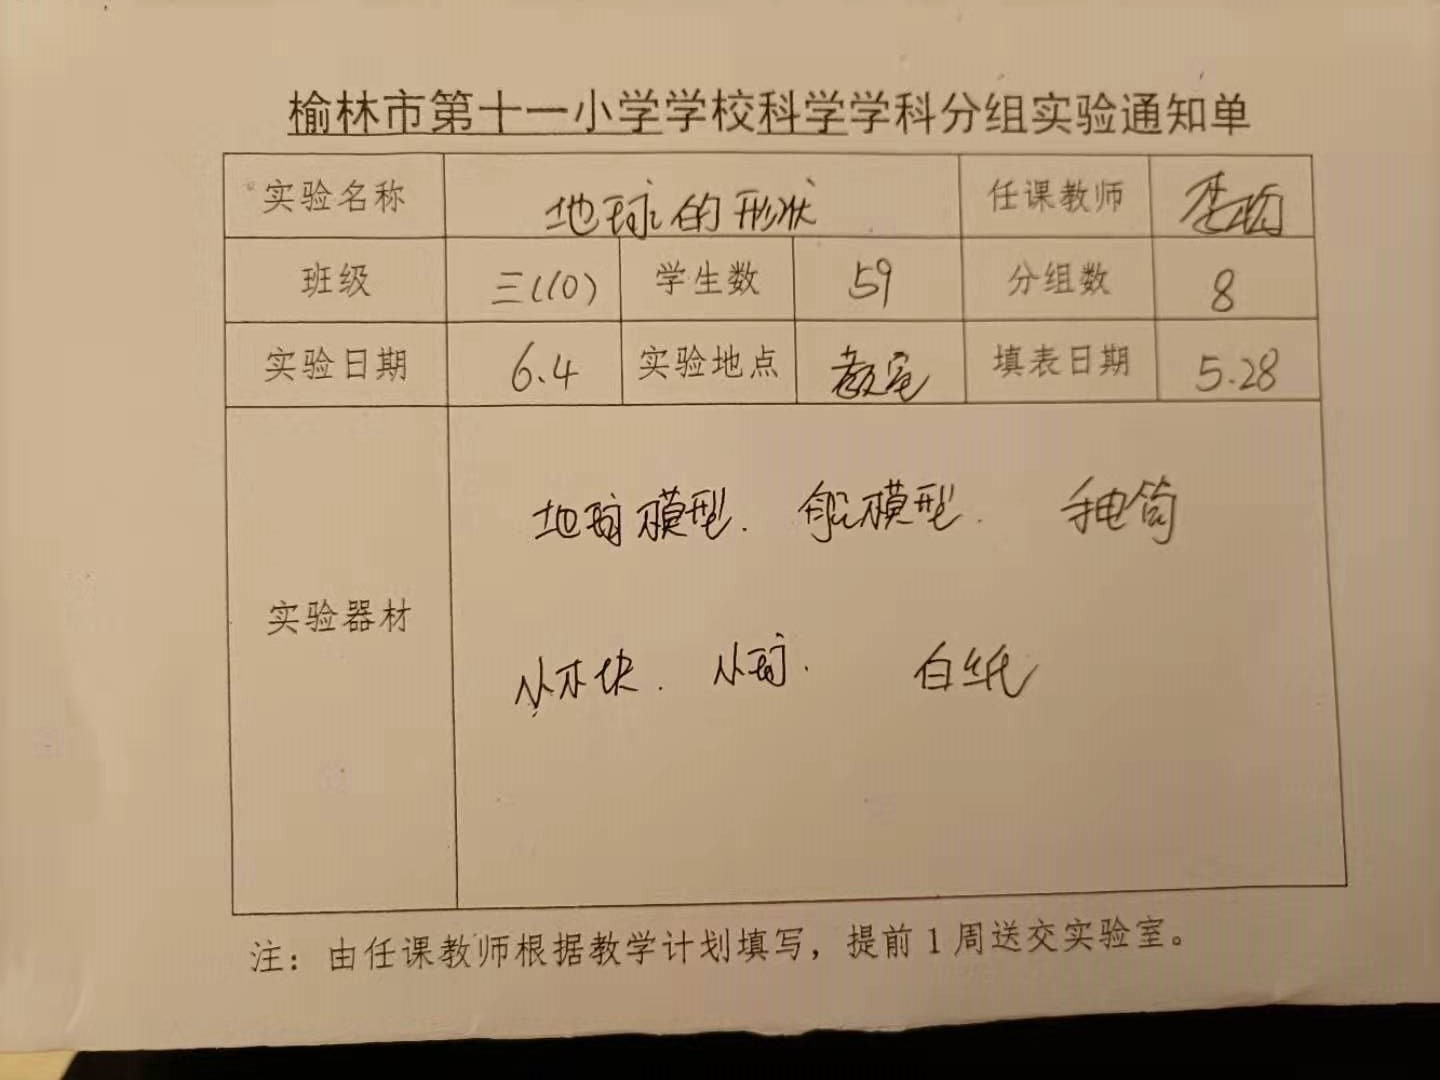 榆林市第十一小学学校科学学科分组实验通知单
实验名称 地球的形状 任课教师 李
班级 三(10) 学生数 59 分组数 8
实验日期 6.4 实验地点 教室 填表日期 5.28
地球模型. 船模型. 手电筒
实验器材
小木块. 小球. 白纸
注：由任课教师根据教学计划填写，提前1周送交实验室。